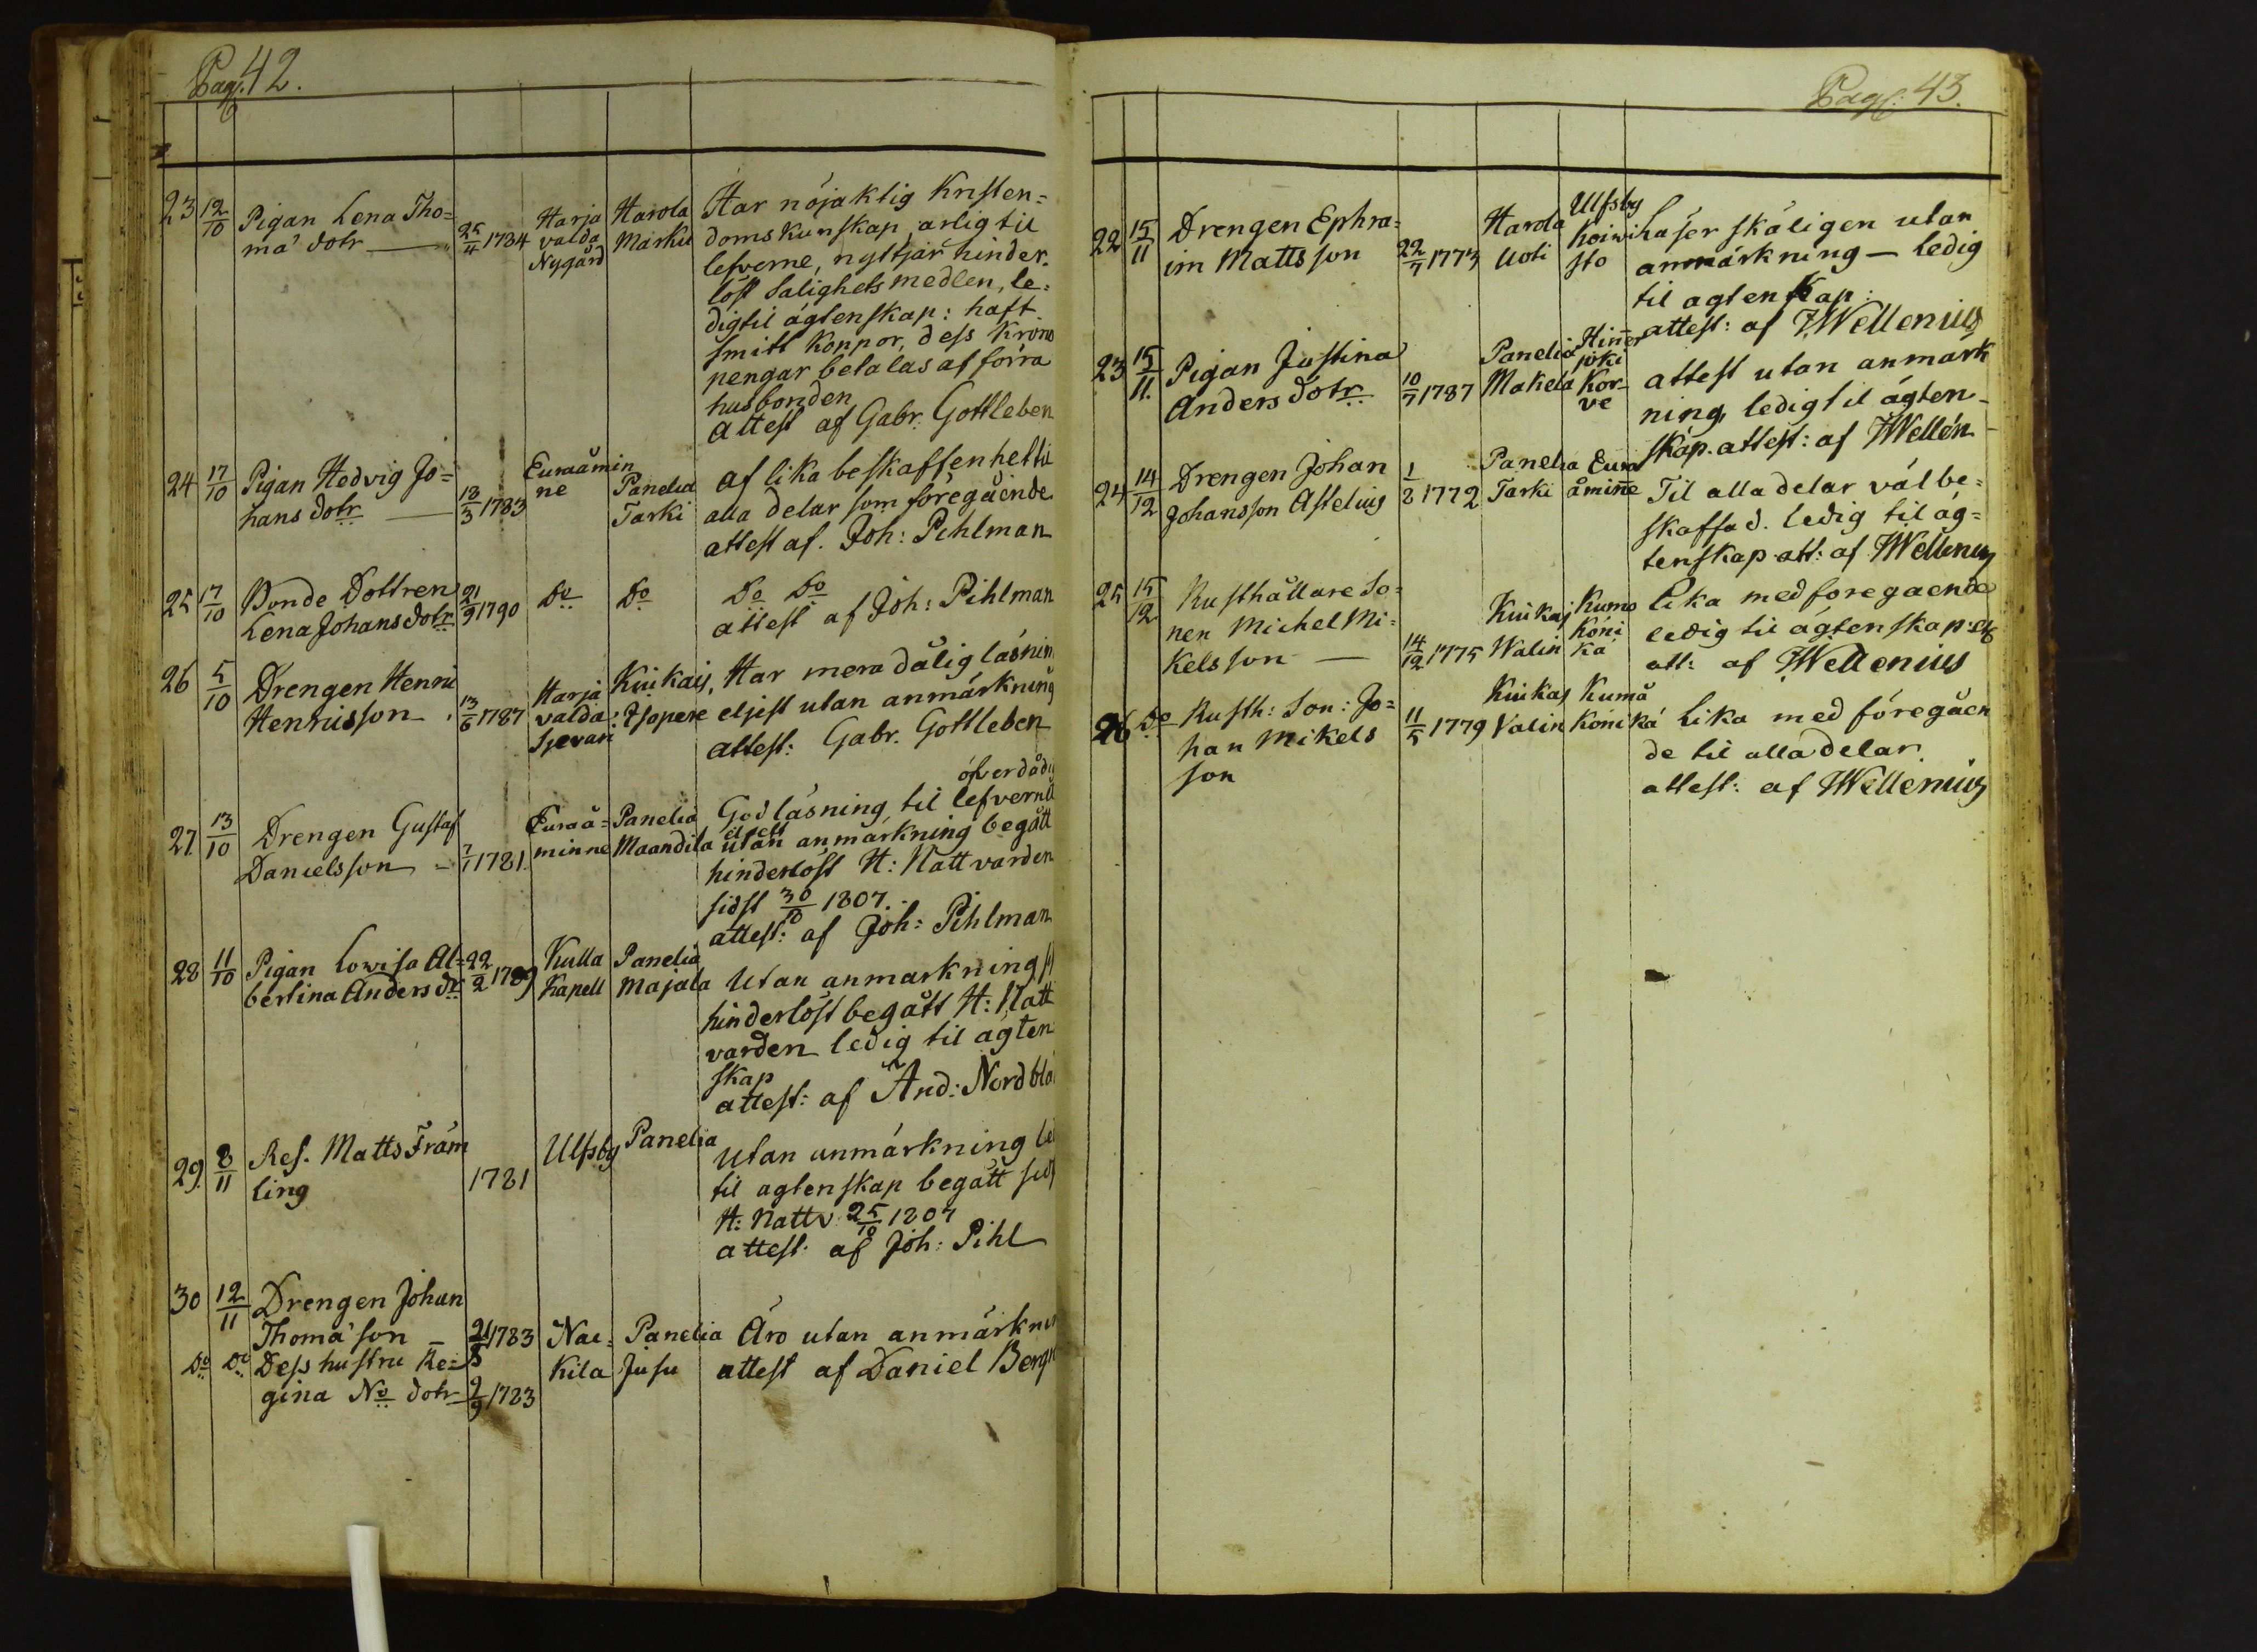 Pag. 42.
23 12/10 Pigan Lena Tho=
ma dotr 25/4 1784 Harja
valda
Nygård Harola
Markù Har nöjaktig Kristen=
doms kunskap, ärlig til
lefverne, nyttjar hinder=
löst Salighets medlen, le=
dig til ägtenskap: haft
smitt koppor, dess Krono
pengar betalas af förra
husbonden
Attest af Gabr. Gottleben
24 17/10 Pigan Hedvig Jo=
hans dotr 18/3 1783 Euraåmin
ne Panelia
Tarki af lika beskaffenhet til
alla delar som föregående
attest af. Joh: Pihlman
25 17/10 Bonde Dottren
Lena Johans dotr 21/9 1790 Do Do Do Do
attest af Joh: Pihlman
26 5/10 Drengen Henric
Henrisson 13/6 1787 Harja
valda
Kiukais,
Isopere Har mera dålig läsnin
eljest utan anmärkning
attest: Gabr. Gottleben
27. 13/10 Drengen Gustaf
Danielsson 7/1 1781. Euraå=
minne Panelia
Maandila öfverdådi
God läsning, til lefverne
eljest
utan anmärkning begått
hinderlöst H: Nattvarden
sidst 30/10 1807.
attest: af Joh: Pihlman
28 11/10 Pigan Lowisa Al=
bertina Anders Dr 22/2 1789 Kulla
Kapell Panelia
Majala Utan anmarkning
hinderlöst begått H: Natt
varden ledig til ägten
skap
attest: af And: Nordblo
29. 8/11 Ref. Matts Främ
ling 1781 Ulfsby Panelia utan anmärkning le
til agtenskap begått sid
H: Nattv 25/10 1807
attest. af Joh: Pihl
30 12/11 Drengen Johan
Thoma son 21/8 1783 Nac=
kila Panelia
Jusu Äro utan anmärknin
attest af Daniel Berg
Do Do Dess hustru Re=
gina No dotr 9/9 1783
Pag: 43.
22 15/11 Drengen Ephra=
im Matts son 22/7 1773 Harola
Uoti Ulfsby
Koiwi
sto Läser skäligen utan
anmärkning — ledig
til agtenskap:
attest: af JWellenius
23 15/11. Pigan Justina
Anders dotr 10/7 1787 Panelia
Makelä Hiner
joki
Kor=
ve attest utan anmärk
ning, ledig til ägten=
skap. attest: af JWellén
24 14/12 Drengen Johan
Johansson Astelius 1/8 1772 Panelia
Tarki Eura
åminne Til alla delar väl be=
skaffad. ledig til äg=
tenskap att: af JWellenius
25 15/12 Rusthållare So=
nen Michel Mi=
kelsson 14/12 1775 Kiukas
Walin Kumo
Köni
kä Lika med foregaende
ledig til ägtenskap etc
att: af JWellenius
26 Do Rusth: Son: Jo=
han Mikels
son 11/5 1779 Kiukas
Valin Kumå
Könikä Lika med föregåen
de til alla delar.
attest: af JWellenius